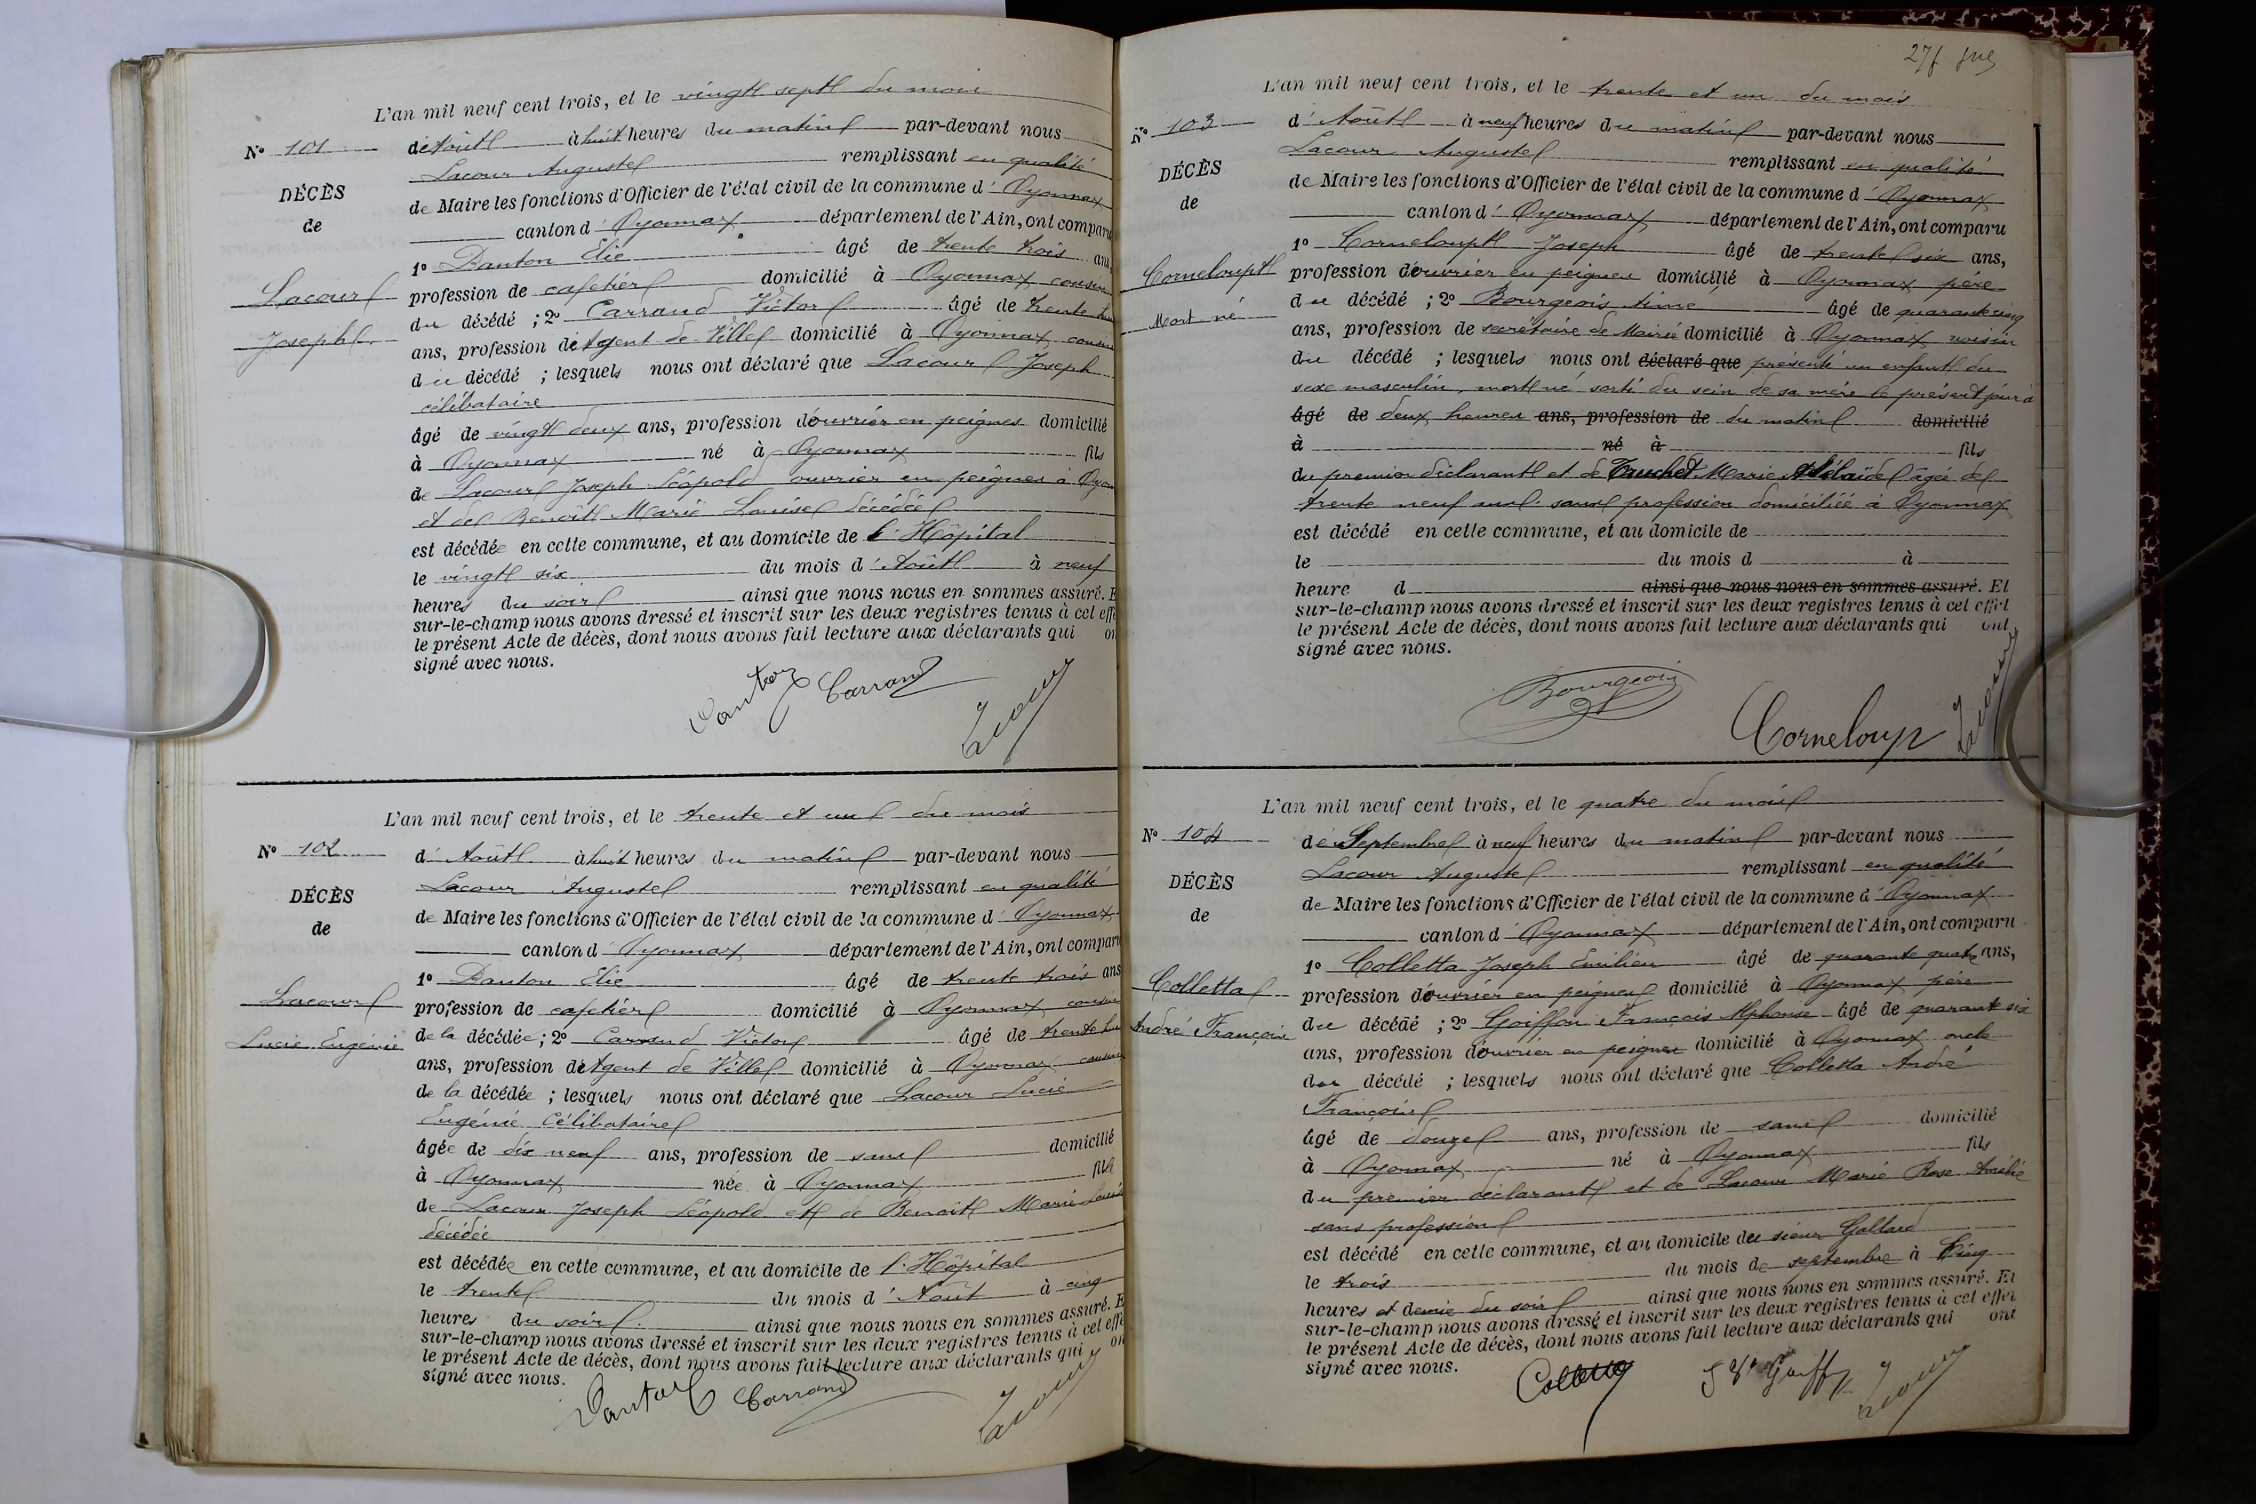 L'an mil neuf cent trois, et le vingt sept du mois
N° 101
d'Août à huit heures du matin par-devant nous
Lacour Auguste remplissant en qualité
DÉCÈS
de Maire les fonctions d'Officier de l'état civil de la commune d'Oyonnax
de
canton d'Oyonnax département de l'Ain, ont comparu
1° Danton Elie âgé de trente trois ans,
Lacour
profession de cafetier domicilié à Oyonnax cousin
du décédé ; 2° Carrand Victor âgé de trente huit
Joseph
ans, profession d'Agent de Ville domicilié à Oyonnax cousin
du décédé ; lesquels nous ont déclaré que Lacour Joseph
célibataire
âgé de vingt deux ans, profession d'ouvrier en peignes domicilié
à Oyonnax né à Oyonnax fils
de Lacour Joseph Léopold ouvrier en peignes à Oyon
et de Benoît Marie Louise décédée
est décédée en cette commune, et au domicile de l'Hôpital
le vingt six du mois d'Août à neuf
heures du soir ainsi que nous nous en sommes assuré. E
sur-le-champ nous avons dressé et inscrit sur les deux registres tenus à cet effe
le présent Acte de décès, dont nous avons fait lecture aux déclarants qui on
signé avec nous.
Danton Carrand Lacour
L'an mil neuf cent trois, et le trente et un du mois
N° 102
d'Août à huit heures du matin par-devant nous
Lacour Auguste remplissant en qualité
DÉCÈS
de Maire les fonctions d'Officier de l'état civil de la commune d'Oyonnax
de
canton d'Oyonnax département de l'Ain, ont comparu
1° Danton Elie âgé de trente trois ans
Lacour
profession de cafetier domicilié à Oyonnax cousin
Lucie Eugénie
de la décédée ; 2° Carrand Victor âgé de trente huit
ans, profession d'Agent de Ville domicilié à Oyonnax cousin
de la décédée ; lesquels nous ont déclaré que Lacour Lucie
Eugénie Célibataire
âgée de dix neuf ans, profession de sans domicilié
à Oyonnax née à Oyonnax fille
de Lacour Joseph Léopold et de Benoît Marie Louise
décédée
est décédée en cette commune, et au domicile de l'Hôpital
le trente du mois d'Août à cinq
heures du soir. ainsi que nous nous en sommes assuré. E
sur-le-champ nous avons dressé et inscrit sur les deux registres tenus à cet effe
le présent Acte de décès, dont nous avons fait lecture aux déclarants qui on
signé avec nous.
Danton Carrand Lacour
L'an mil neuf cent trois, et le trente et un du mois
N° 103
d'Août à neuf heures du matin par-devant nous
Lacour Auguste remplissant en qualité
DÉCÈS
de Maire les fonctions d'Officier de l'état civil de la commune d'Oyonnax
de
canton d'Oyonnax département de l'Ain, ont comparu
1° Corneloup Joseph âgé de trente six ans,
Corneloup
profession d'ouvrier en peignes domicilié à Oyonnax père
Mort né
du décédé ; 2° Bourgeois Aimé âgé de quarante cinq
ans, profession de secrétaire de Mairie domicilié à Oyonnax voisin
du décédé ; lesquels nous ont déclaré que présenté un enfant du
sexe masculin, mort né sorti du sein de sa mère le présent jour à
âgé de deux heures ans, profession de du matin domicilié
à né à fils
du premier déclarant et de Marie Adélaïde âgée de
trente neuf ans sans profession domiciliée à Oyonnax
est décédé en cette commune, et au domicile de
le du mois d à
heure d ainsi que nous nous en sommes assuré. Et
sur-le-champ nous avons dressé et inscrit sur les deux registres tenus à cet effet
le présent Acte de décès, dont nous avons fait lecture aux déclarants qui ont
signé avec nous.
Bourgeois Corneloup Lacour
L'an mil neuf cent trois, et le quatre du mois
N° 104
de Septembre à neuf heures du matin par-devant nous
Lacour Auguste remplissant en qualité
DÉCÈS
de Maire les fonctions d'Officier de l'état civil de la commune d'Oyonnax
de
canton d'Oyonnax département de l'Ain, ont comparu
1° Colletta Joseph Emilien âgé de quarante quatre ans,
Colletta
profession d'ouvrier en peignes domicilié à Oyonnax père
André François
du décédé ; 2° Goiffon François Alphonse âgé de quarante six
ans, profession d'ouvrier en peignes domicilié à Oyonnax oncle
du décédé ; lesquels nous ont déclaré que Colletta André
François
âgé de douze ans, profession de sans domicilié
à Oyonnax né à Oyonnax fils
du premier déclarant et de Lacour Marie Rose Amélie
sans profession
est décédé en cette commune, et au domicile du sieur Gallard
le trois du mois de septembre à Cinq
heures et demie du soir ainsi que nous nous en sommes assuré. Et
sur-le-champ nous avons dressé et inscrit sur les deux registres tenus à cet effet
le présent Acte de décès, dont nous avons fait lecture aux déclarants qui ont
signé avec nous.
Colletta Lacour